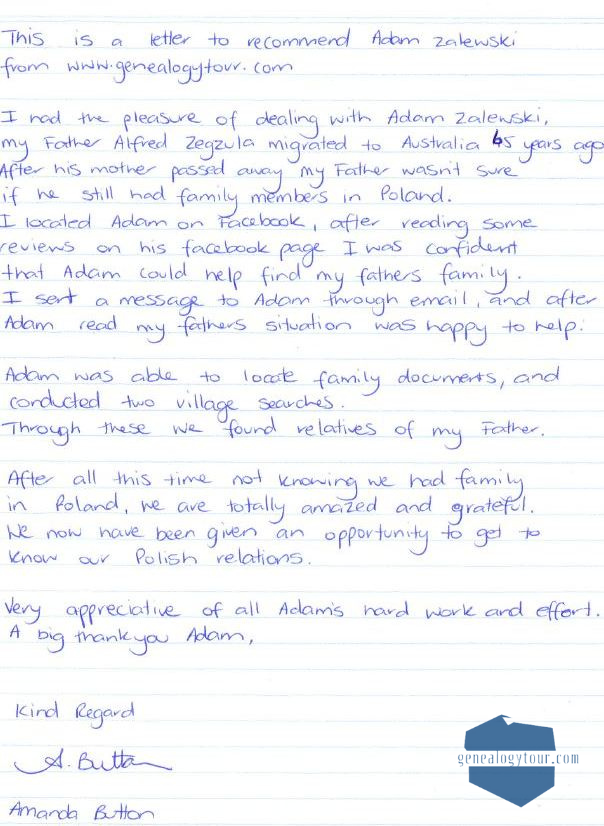 This is a letter to recommend Adam Zalewski
from www.genealogytour.com
I had the pleasure of dealing with Adam Zalewski,
my Father Alfred Zegzula migrated to Australia 65 years ago
After his mother passed away my Father wasn't sure
if he still had family members in Poland.
I located Adam on Facebook, after reading some
reviews on his facebook page I was confident
that Adam could help find my fathers family.
I sent a message to Adam through email, and after
Adam read my fathers situation was happy to help.
Adam was able to locate family documents, and
conducted two village searches.
Through these we found relatives of my Father.
After all this time not knowing we had family
in Poland, we are totally amazed and grateful.
We now have been given an opportunity to get to
know our Polish relations.
Very appreciative of all Adam's hard work and effort.
A big thankyou Adam,
Kind Regard
A. Button
Amanda Button
genealogytour.com